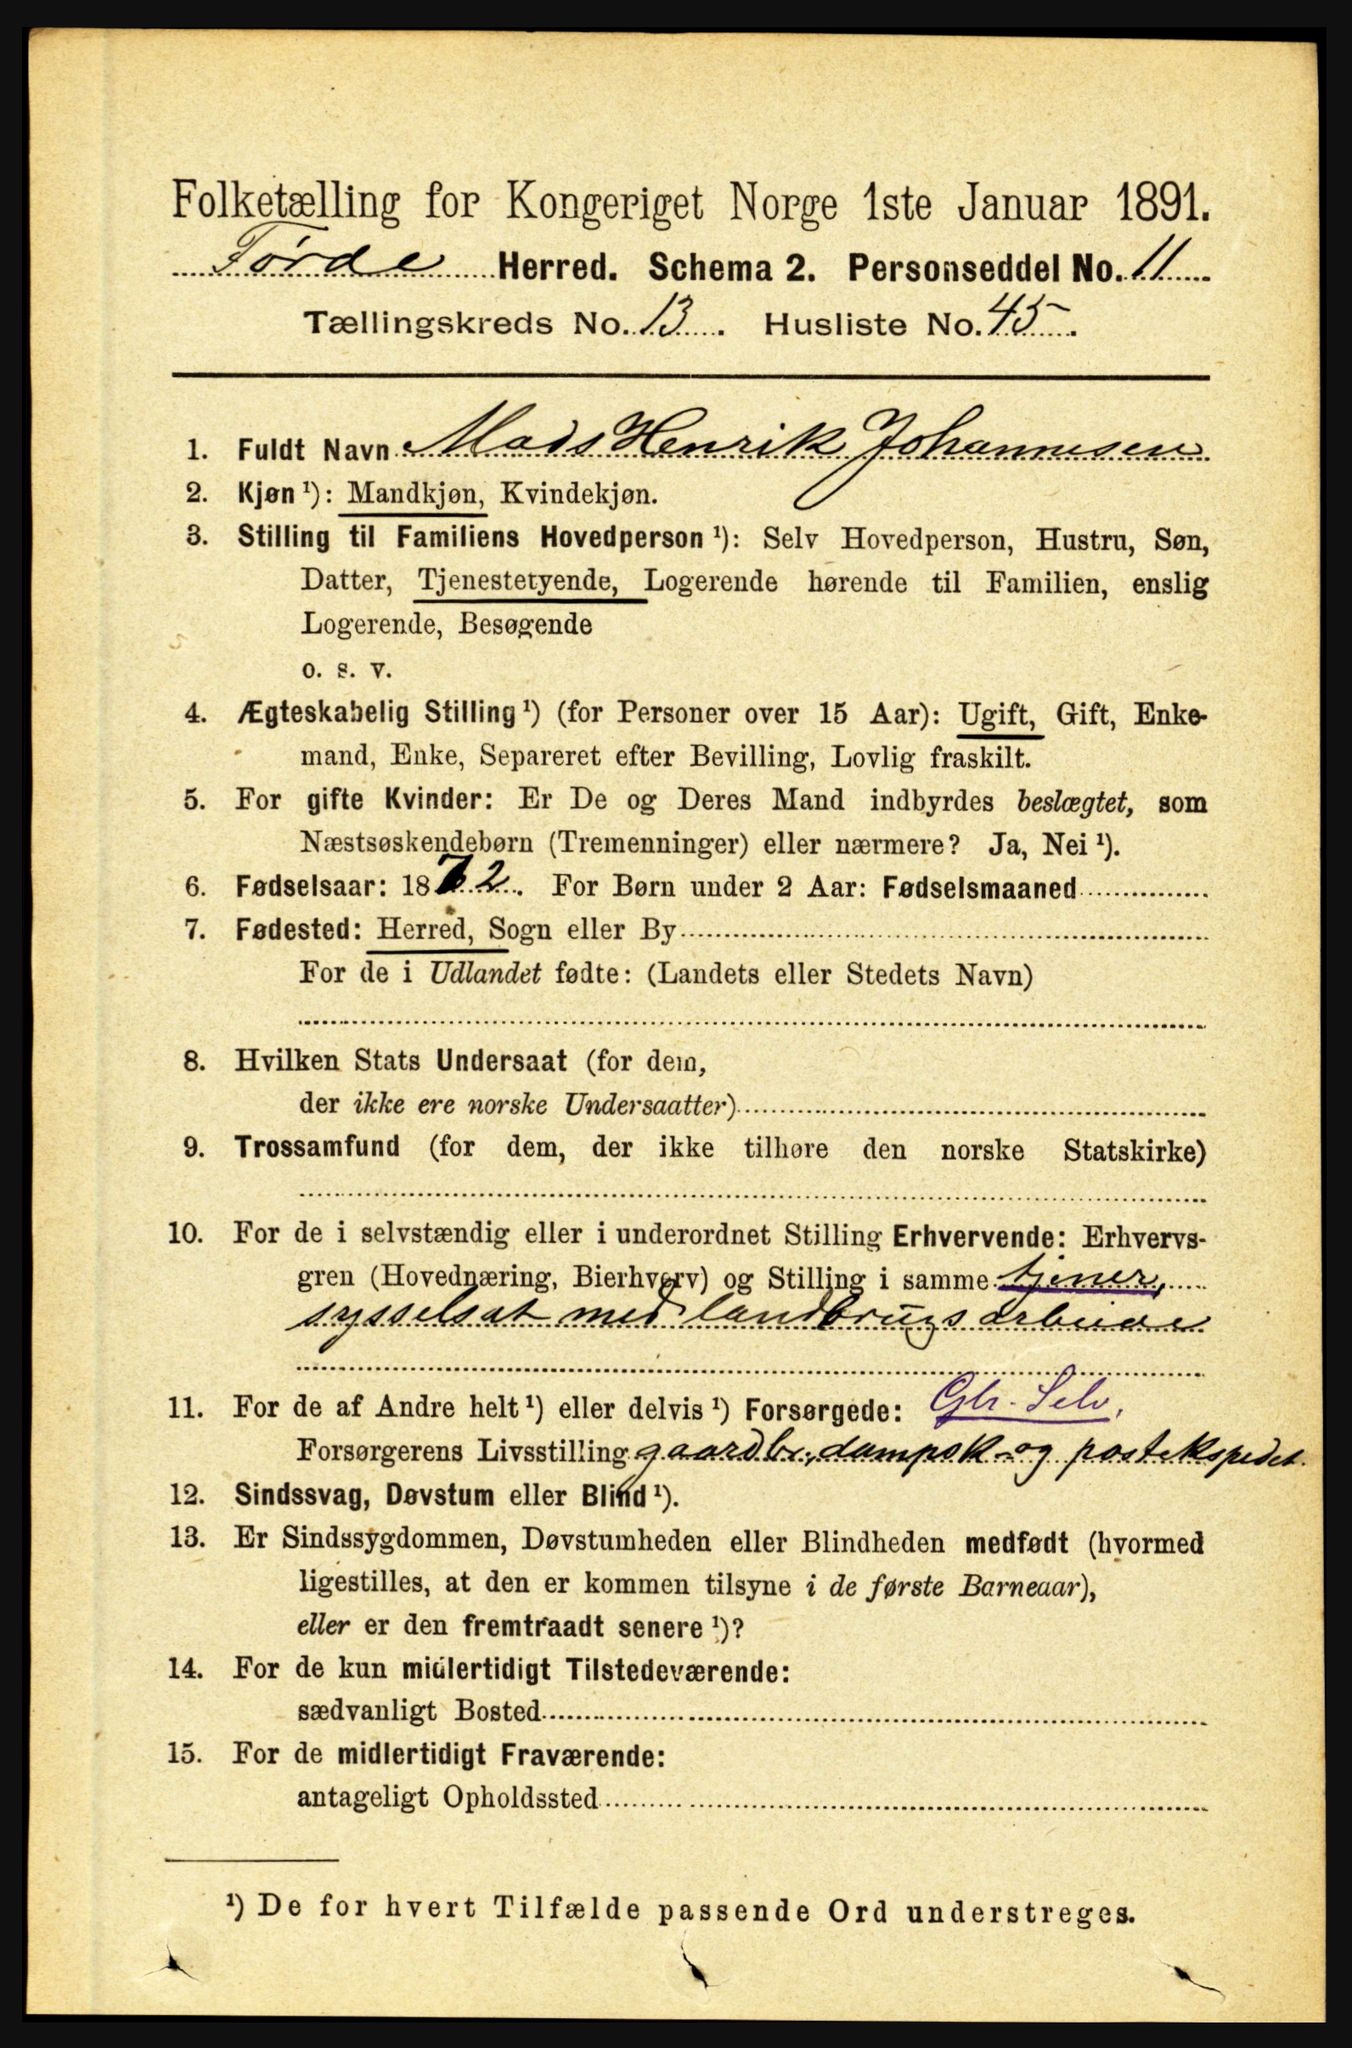 Folketælling for Kongeriget Norge 1ste Januar 1891.
Førde Herred. Schema 2. Personseddel No. 11
Tællingskreds No. 13. Husliste No. 45.
1. Fuldt Navn Mads Henrik Johannesen
2. Kjøn ¹): Mandkjøn, Kvindekjøn.
3. Stilling til Familiens Hovedperson ¹): Selv Hovedperson, Hustru, Søn,
Datter, Tjenestetyende, Logerende hørende til Familien, enslig
Logerende, Besøgende
o. s. v.
4. Ægteskabelig Stilling ¹) (for Personer over 15 Aar): Ugift, Gift, Enke-
mand, Enke, Separeret efter Bevilling, Lovlig fraskilt.
5. For gifte Kvinder: Er De og Deres Mand indbyrdes beslægtet, som
Næstsøskendebørn (Tremenninger) eller nærmere? Ja, Nei ¹).
6. Fødselsaar: 1872. For Børn under 2 Aar: Fødselsmaaned
7. Fødested: Herred, Sogn eller By
For de i Udlandet fødte: (Landets eller Stedets Navn)
8. Hvilken Stats Undersaat (for dem,
der ikke ere norske Undersaatter)
9. Trossamfund (for dem, der ikke tilhøre den norske Statskirke)
10. For de i selvstændig eller i underordnet Stilling Erhvervende: Erhvervs-
gren (Hovednæring, Bierhverv) og Stilling i samme tjener,
sysselsat med landbrugsarbeide
11. For de af Andre helt ¹) eller delvis ¹) Forsørgede: Gbr. Selv,
Forsørgerens Livsstilling gaardbr., dampsk- og postekspedet.
12. Sindssvag, Døvstum eller Blind ¹).
13. Er Sindssygdommen, Døvstumheden eller Blindheden medfødt (hvormed
ligestilles, at den er kommen tilsyne i de første Barneaar),
eller er den fremtraadt senere ¹)?
14. For de kun midlertidigt Tilstedeværende:
sædvanligt Bosted
15. For de midlertidigt Fraværende:
antageligt Opholdssted
¹) De for hvert Tilfælde passende Ord understreges.